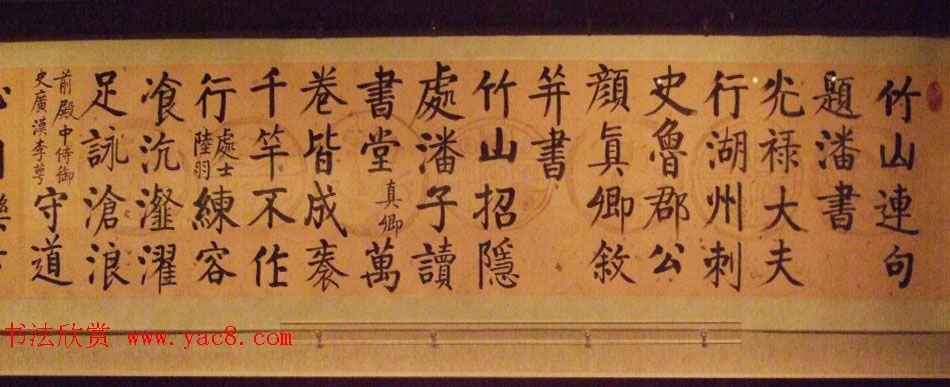 竹山連句
題潘書
光祿大夫
行湖州刺
史魯郡公
顏真卿敘
并書
竹山招隱
處潘子讀
書堂真卿萬
卷皆成袠
千竿不作
行處士陸羽練容
飡沆瀣濯
足詠滄浪
前殿中侍御
史廣漢李萼守道
书法欣赏 www.yac8.com